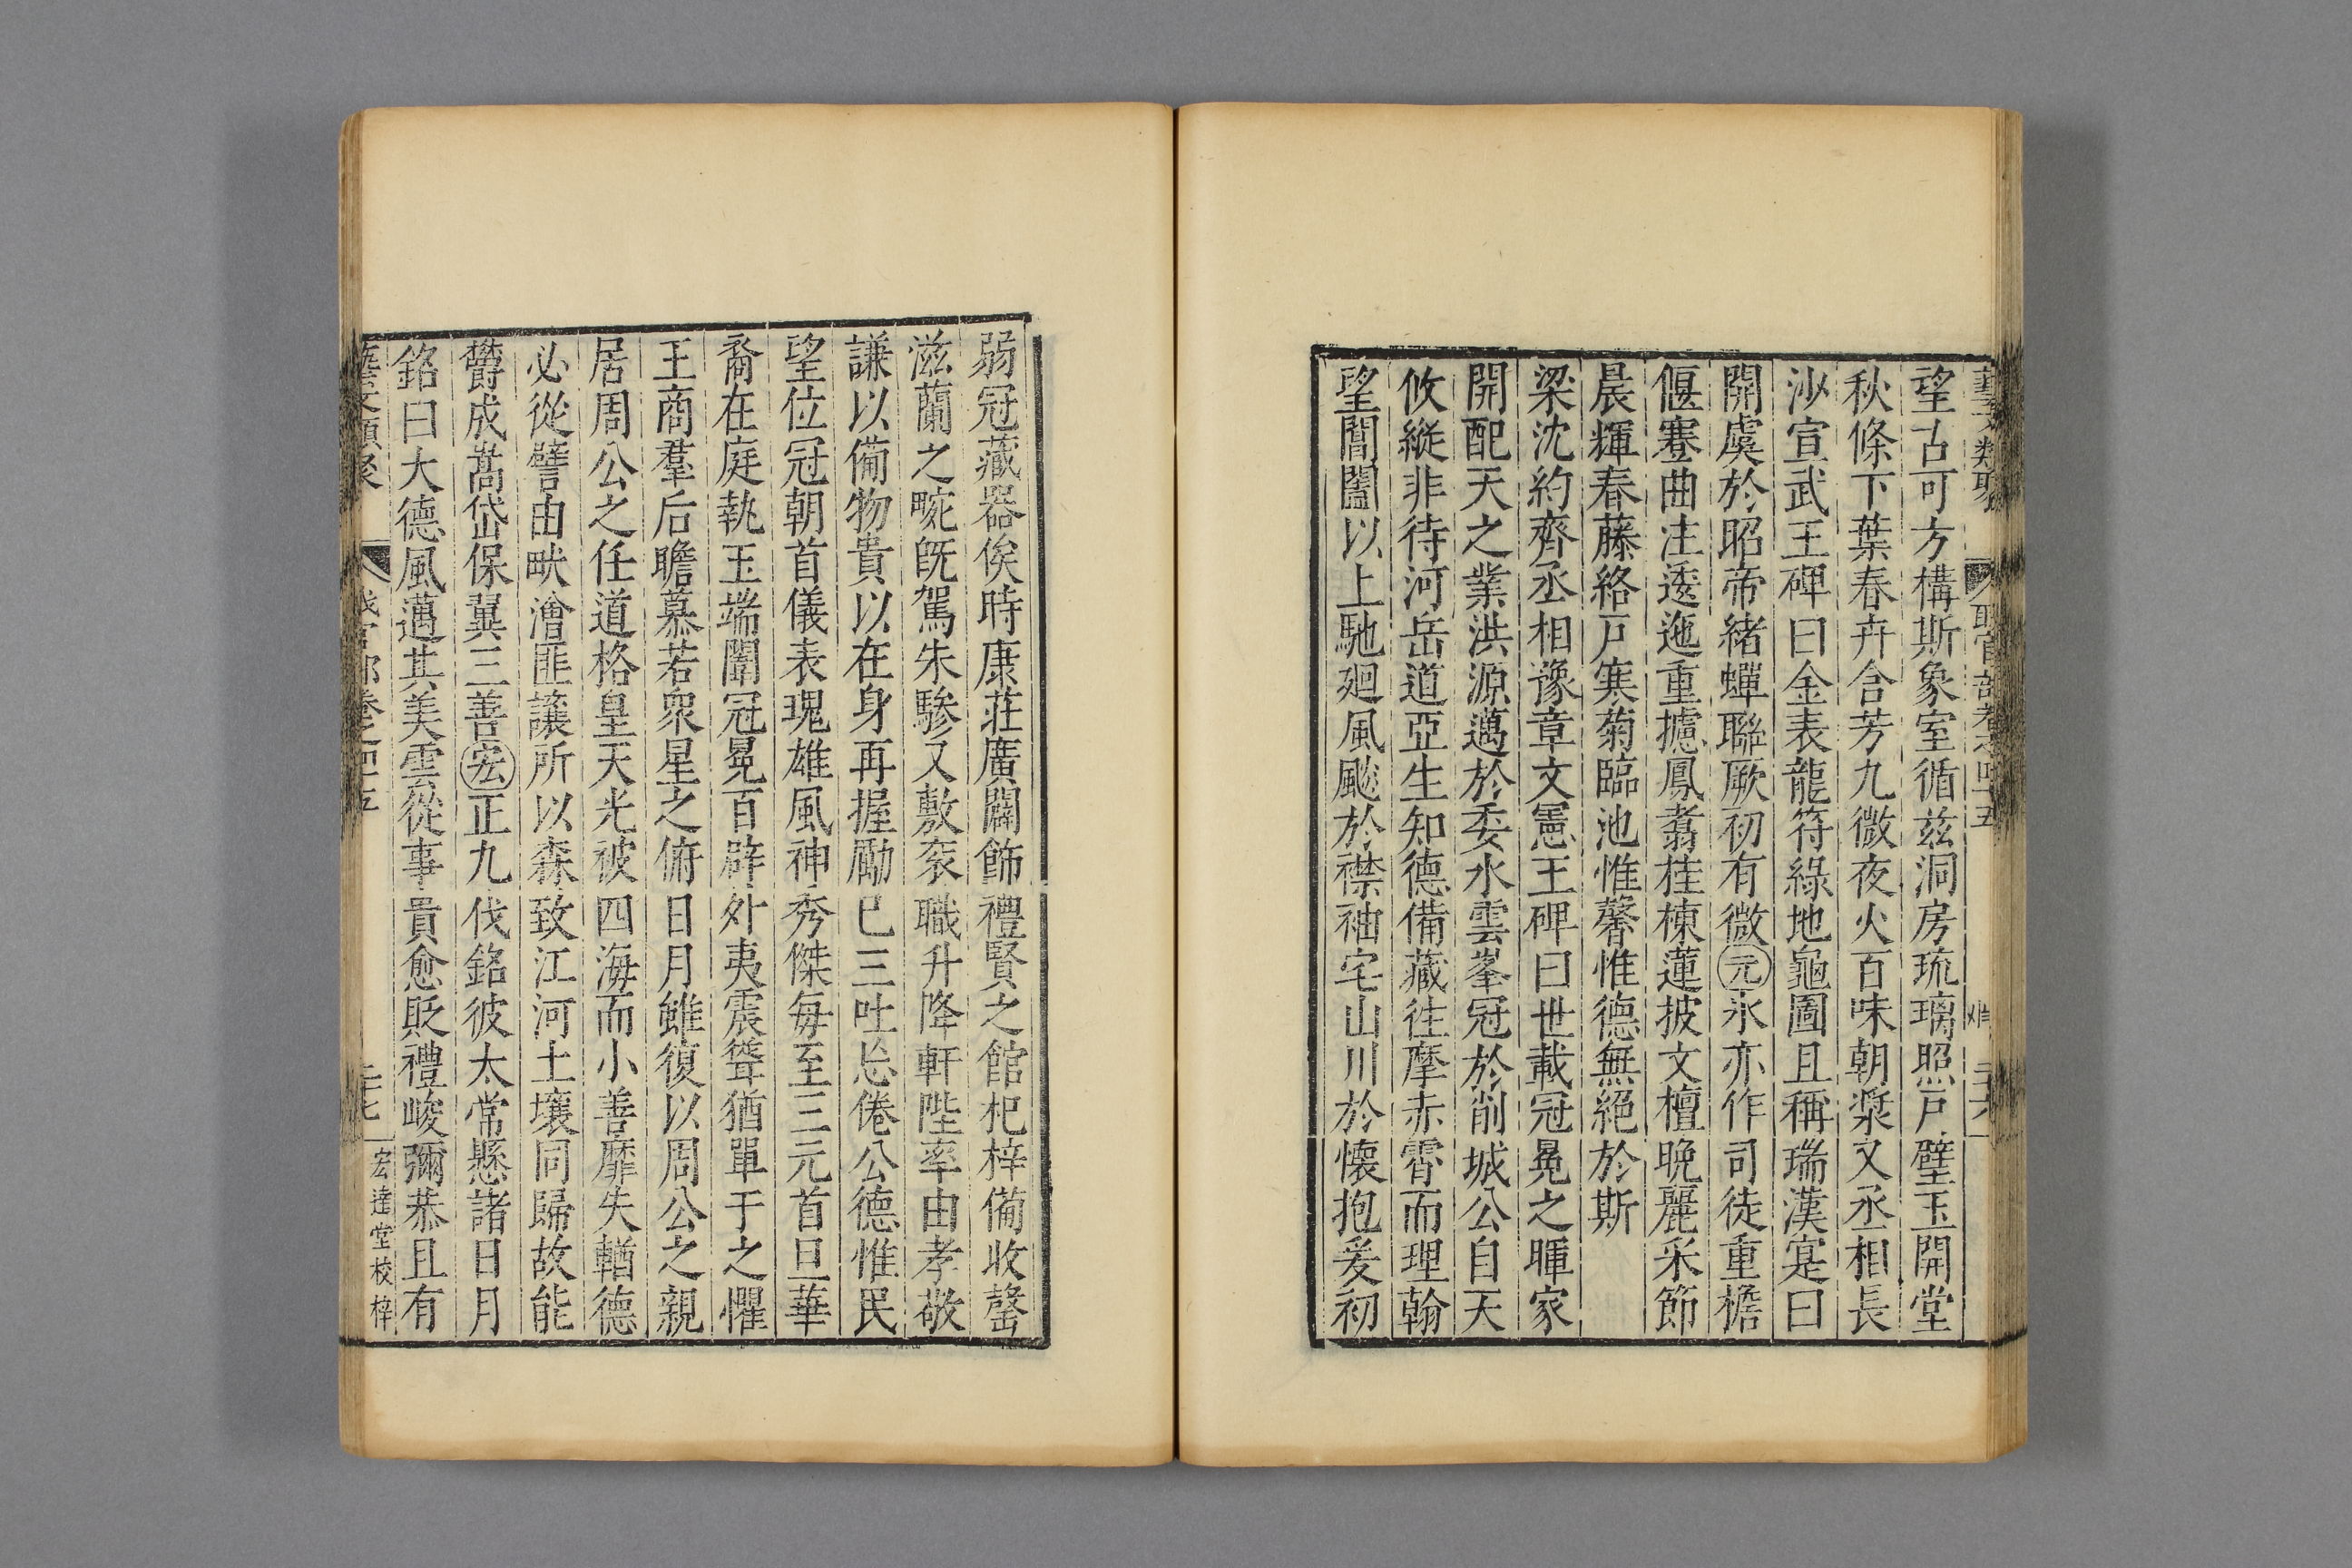 藝文類聚 職官部卷之四十五 二十六
望古可方構斯象室循兹洞房琉璃照戸璧玉開堂
秋條下葉春卉含芳九微夜火百味朝漿又丞相長
沙宣武王碑曰金表龍符綠地龜圖且稱瑞漢寔曰
開虞於昭帝緒蟬聯厥初有微元永亦作司徒重檐
偃蹇曲注逶迤重攄鳳翥桂棟蓮披文檀晩麗采節
晨輝春藤絡戸寒菊臨池惟馨惟德無絕於斯
梁沈約齊丞相豫章文憲王碑曰世載冠冕之暉家
開配天之業洪源邁於委水雲峯冠於削城公自天
攸縱非待河岳道亞生知德備藏往摩赤霄而理翰
望閶闔以上馳廻風颷於襟袖宅山川於懷抱爰初
弱冠藏器俟時康莊廣闢飾禮賢之館杞梓備收罄
滋蘭之畹旣駕朱驂又敷衮職升降軒陛率由孝敬
謙以備物貴以在身再握勵已三吐忘倦公德惟民
望位冠朝首儀表瑰雄風神秀傑每至三元首旦華
裔在庭執玉端闈冠冕百辟外夷震聳猶單于之懼
王商羣后瞻慕若衆星之俯日月雖復以周公之親
居周公之任道格皇天光被四海而小善靡失輶德
必從譬由畎澮匪讓所以森致江河土壤同歸故能
欝成嵩岱保翼三善宏正九伐銘彼太常懸諸日月
銘曰大德風邁其美雲從事貴愈貶禮峻彌恭且有
藝文類聚 職官部卷之四十五 二十七 宏達堂校梓